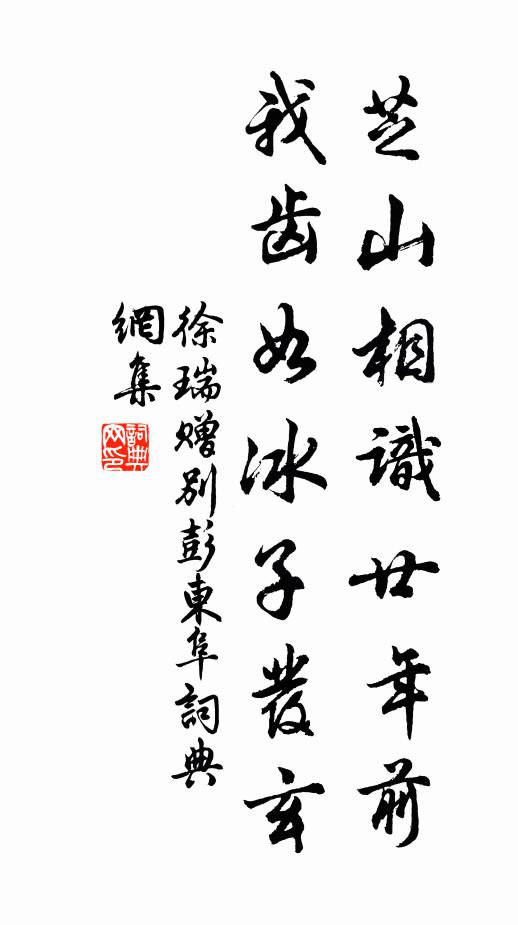 芝山相識廿年前
我齒如冰子發玄
徐瑞贈別彭東阜詞典
網集
詞典網印